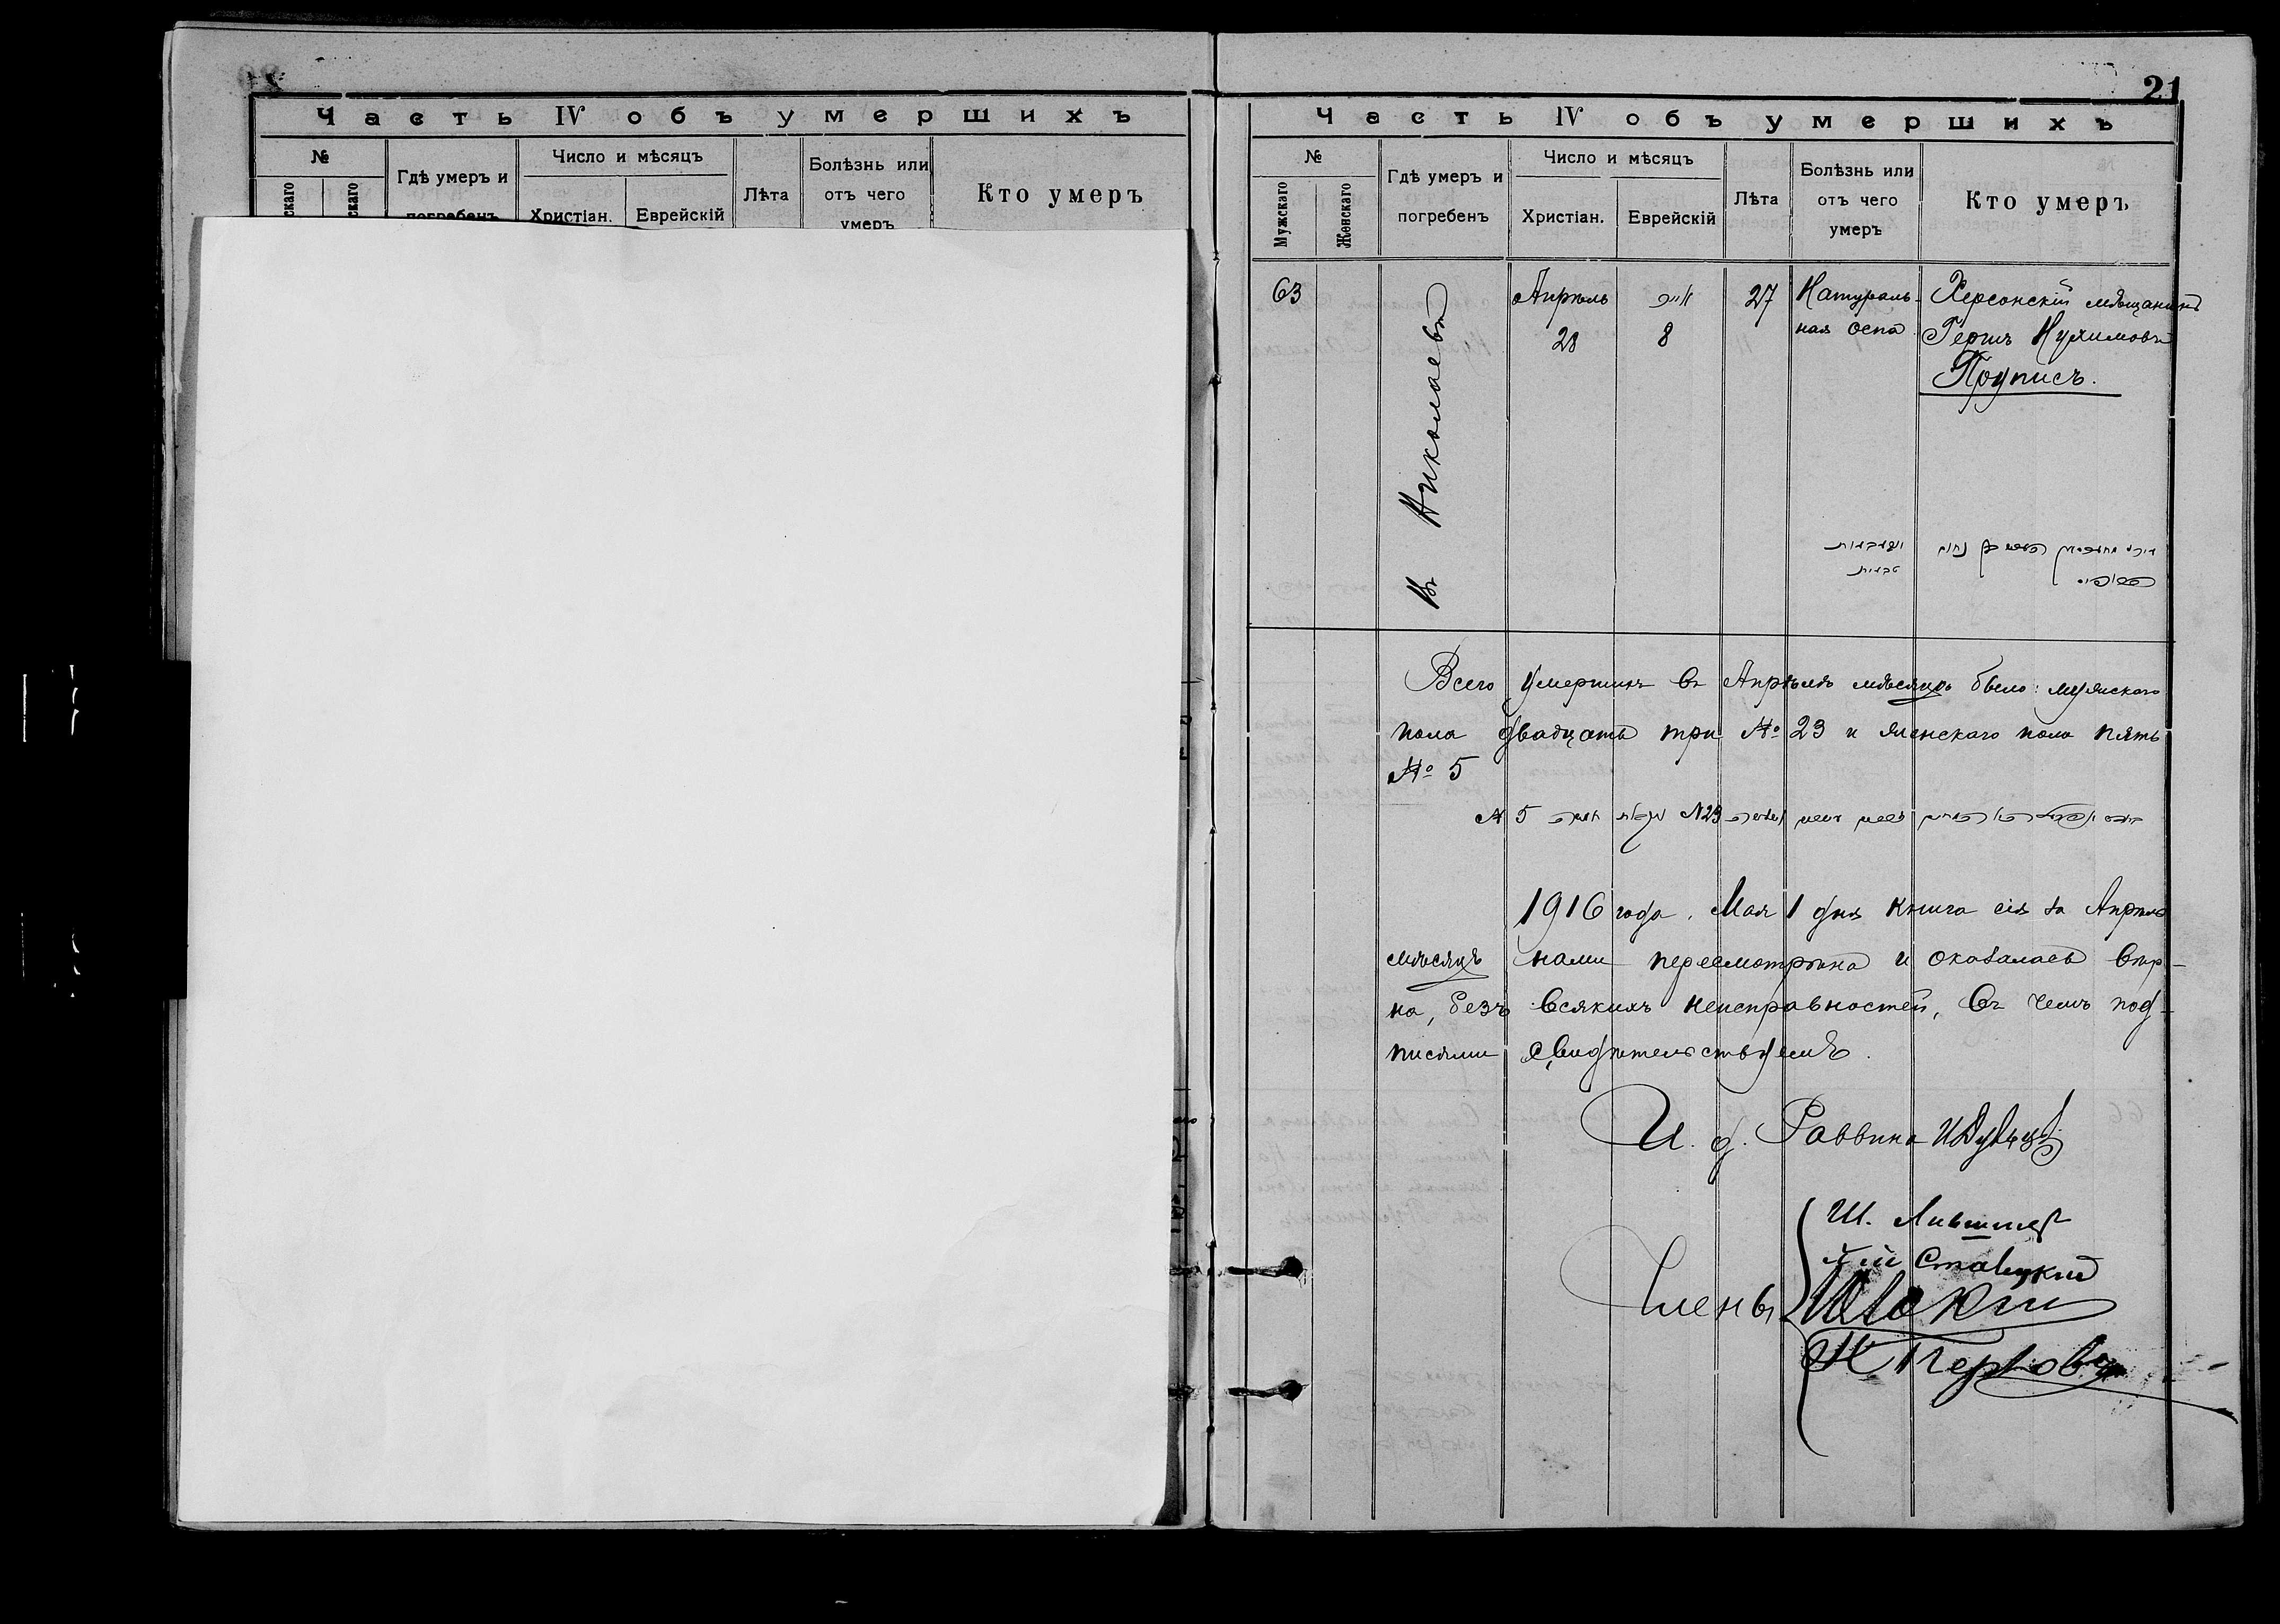 Часть IV объ умершихъ
№
Гдѣ умеръ и
погребенъ
Число и мѣсяцъ
Христіан.
Еврейскій
Лѣта
Болѣзнь или
отъ чего
умеръ
Кто умеръ
21
Часть IV объ умершихъ
№
Мужскаго
Женскаго
Гдѣ умеръ и
погребенъ
Число и мѣсяцъ
Христіан.
Еврейскій
Лѣта
Болѣзнь или
отъ чего
умеръ
Кто умеръ
63
Въ Николаевѣ
Апрѣль
28
אייר
8
27
Натураль-
ная оспа
Херсонскій мѣщанинъ
Гершъ Нухимовъ
Пруписъ.
Всего умершихъ въ Апрѣлѣ мѣсяцѣ было: мужскаго
пола двадцать три № 23 и женскаго пола пять
№ 5
1916 года. Мая 1 дня книга сія за Апрѣль
мѣсяцъ нами пересмотрѣна и оказалась вѣр-
на, безъ всякихъ неисправностей, въ чемъ под-
писями свидѣтельствуемъ.
И. д. Раввина
Члены
Ш. Лившиц
Ставицкий